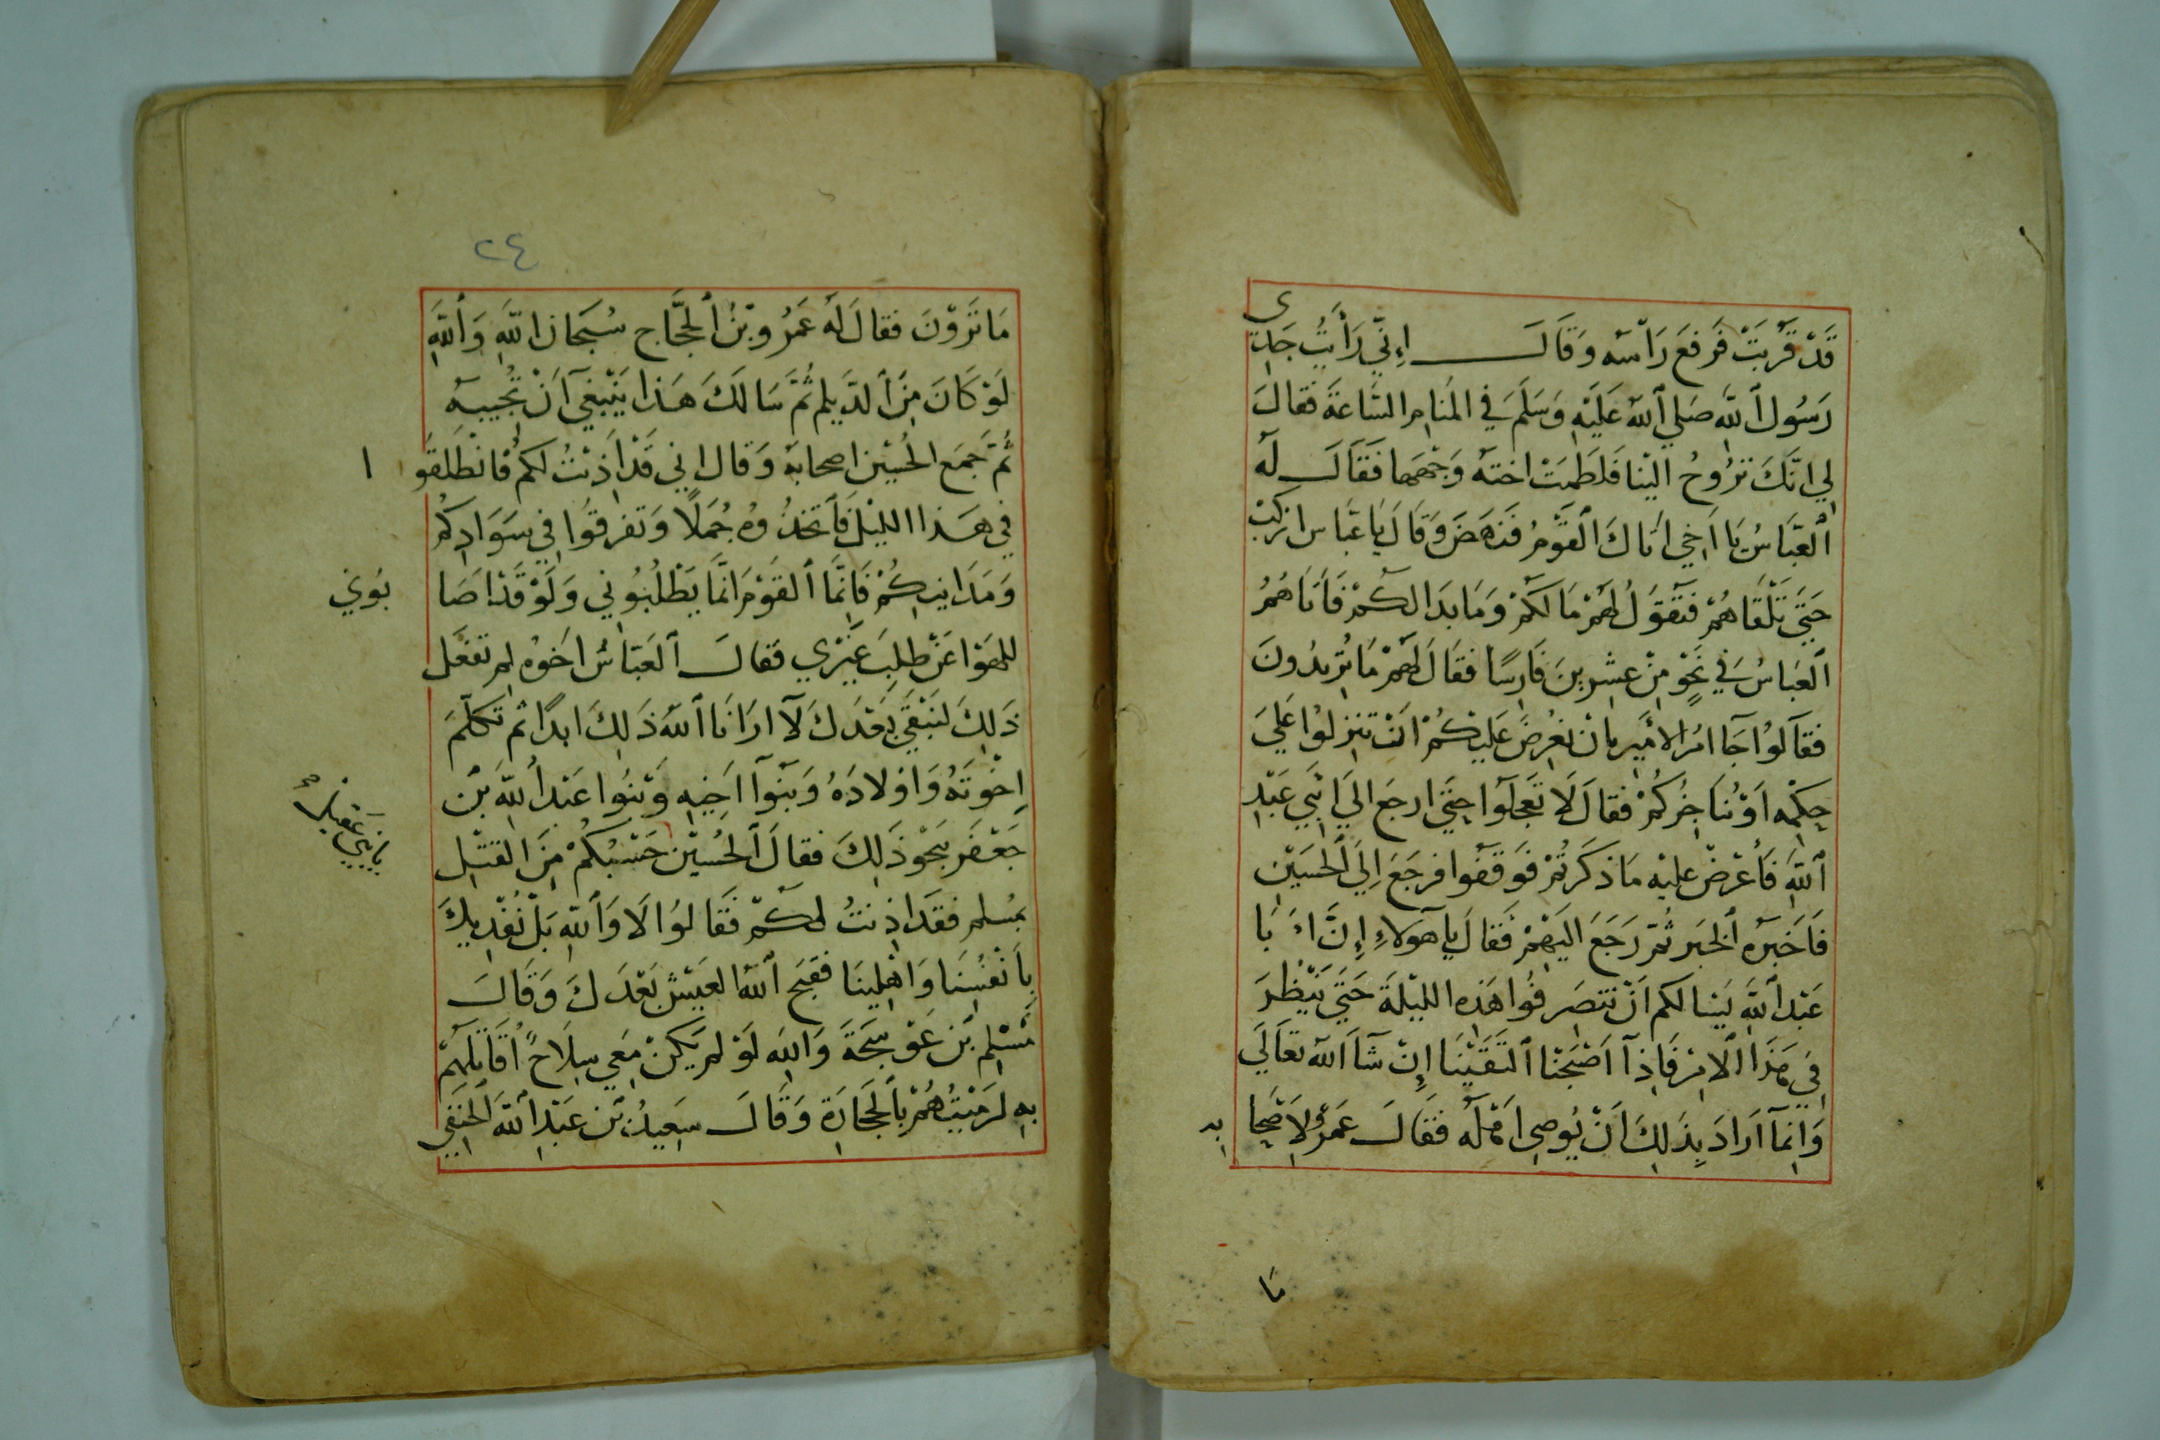 قَدْ قَرُبَتْ فَرَفَعَ رَأْسَه وَقَالَ اِنِّي رَأَيْتُ جَدِّي
رَسُولَ ٱللَّهِ صَلي ٱللهُ عَلَيْهِ وَسَلَمَ فِي المَنامِ السَّاعَةَ فَقالَ
لِي اِنَّكَ تَرُوحُ اليْنا فَلَطَمَتْ اختهُ وَجْهَهَا فَقَالَ لَهُ
ٱلعَبَّاسُ يَا اَخِي اَتَاكَ ٱلقَوْمُ فَنَهَضَ وَقَالَ يَا عَبَّاس ارْكَبْ
حَتَّي تَلْقَاهُمْ فَتَقُولُ لَهُمْ مَا لَكُمْ وَمَا بَدَا لَكُمْ فَأَتَاهُمُ
ٱلعَبَّاسُ فِي نَحْوٍ مِنْ عِشْرِينَ فَارِسًا فَقَالَ لَهُمْ مَا تُرِيدُونَ
فَقَالُوا جَا امْرُ الأَمِيرِ بِأن نَعْرِضَ عَلَيْكُمْ اَنْ تَنْزِلُوا عَلَيَ
حِكْمِه اَوْ نُنَاجِزُكُمْ فَقَالَ لَا تَعْجَلُوا حَتَّي ارجعَ الَي اَبِي عَبْدِ
ٱللَّهِ فَأَعْرَضَ عَلَيْهِ مَا ذَكَرْتُمْ فَوَقَفُوا فَرَجَعَ اِلَي ٱلحُسَيْنِ
فَاَخبَرَه ٱلخَبَر ثُمَّ رَجَعَ اِلَيْهِمْ فَقَالَ يَا هَوُلَاءِ اِنَّ اَبَا
عَبْدِ ٱللَّهِ يَسَالكم اَنْ تَنْصَرِفُوا هَذِهِ اللَّيْلَةَ حَتَّي يَنْظُرَ
فِي هَذَا الاَمْرِ فَاِذَا اَصْبَحْنَا ٱلتَقَيْنَا اِنْ شَآ اللهُ تَعَالَي
وَاِنَّمَآ اَرَادَ بِذَلِكَ اَنْ يُوصِي اَهْلَه فَقَالَ عَمْرُو لِاَصْحَا
بِهِ
مَا
٢٤
مَا تَرَوْنَ فَقالَ لَهُ عَمْرُو بْنُ ٱلحَجَّاج سُبْحَانَ اللَّهِ وَٱللَّهِ
لَوْ كَانَ مِنَ ٱلدَّيلمِ ثُمَّ سَالَكَ هَذا يَنْبَغِي اَنْ تُجِيبَهُ
ثُمَّ جَمَع الحُسَيْن اصحابهُ وَقال اِنِي قَدْ اَذِنْتُ لَكُمْ فَانْطَلِقُو
ا
فِي هَذا اللَيْلِ فَٱتَّخِذُوهُ جُمَلًا وَتَفرقُوا فِي سَوَادِكُمْ
وَمَدَاينِكُمْ فَاِنَّمَا ٱلقَوْمُ اِنَّمَا يَطْلُبُونِي وَلَوْ قَدْ اَصَا
بُونِي
لَلَهَوْا عَنْ طَلَبِ غَيْرِي فَقَالَ ٱلعَبَّاسُ اَخوُه لِمَ تَفْعَل
ذَلِكَ لِنَبْقَي بَعْدَكَ لَآ اَرَانَا ٱللهُ ذَلِكَ ابَدًا ثُم تَكَلَّمَ
اِخْوَتَهُ وَاَوْلَادَهُ وَبَنُوآ اَخِيهِ وَبَنُوا عَبْدِ ٱللَّهِ بْنِ
جَعْفَر بِنَحْوِ ذَلِكَ فَقَالَ ٱلحُسَيْنَ حَسْبُكُمْ مِنَ القَتْلِ
يَا بَنِي عَقِيلٍ
بِمُسلمٍ فَقَدْ اَذِنتُ لَكُمْ فَقَالُوا لَا وَٱللَّهِ بَلْ نُفْدِيكَ
بِاَنْفُسِنَا وَاَهْلِينَا فَقَبَحَ ٱللهُ العَيْشَ بَعْدَكَ وَقَالَ
مُسْلِم بْن عَوْسَجَةَ وَاللهِ لَوْ لَمْ يَكُنْ مَعِي سِلَاحٌ اُقَاتِلُهُمْ
بِهِ لَرَمَيْتُهُمْ بِٱلحِجَارَةِ وَقَالَ سَعِيدُ بْن عَبْدِ ٱللَّهِ ٱلحَنَفِي